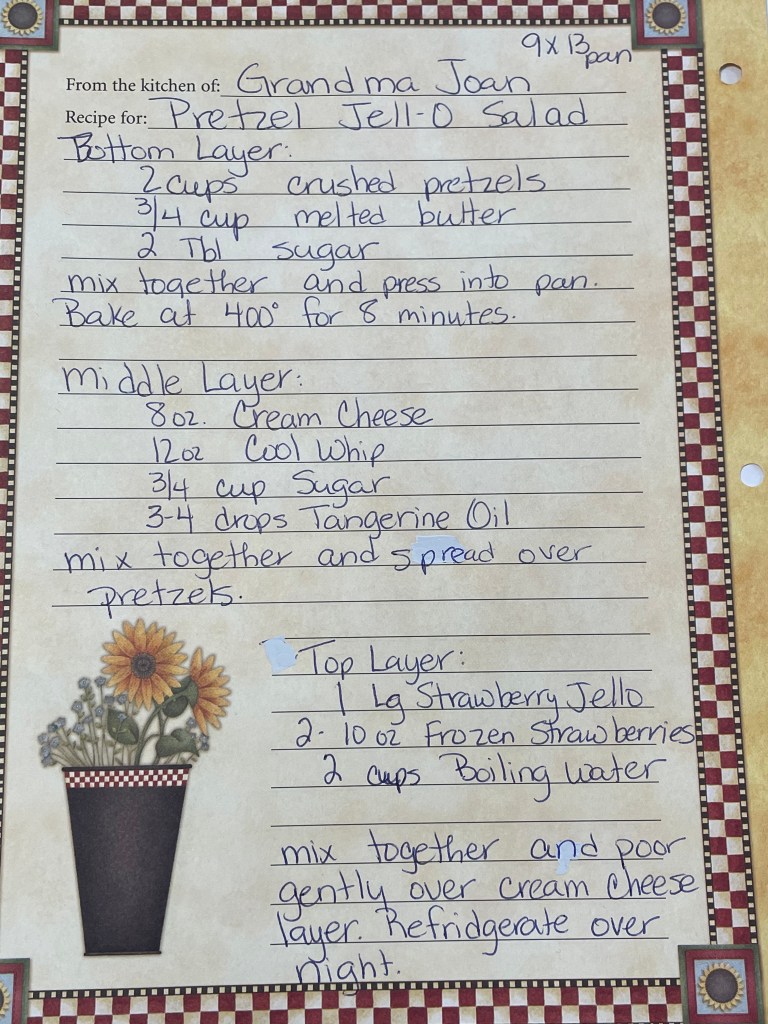 9 x 13 pan
From the kitchen of: Grandma Joan
Recipe for: Pretzel Jell-O Salad
Bottom Layer:
2 cups crushed pretzels
3/4 cup melted butter
2 Tbl sugar
mix together and press into pan.
Bake at 400° for 8 minutes.
Middle Layer:
8 oz. Cream Cheese
12 oz Cool Whip
3/4 cup Sugar
3-4 drops Tangerine Oil
mix together and spread over
pretzels.
Top Layer:
1 Lg Strawberry Jello
2- 10 oz Frozen Strawberries
2 cups Boiling water
mix together and poor
gently over cream cheese
layer. Refridgerate over
night.